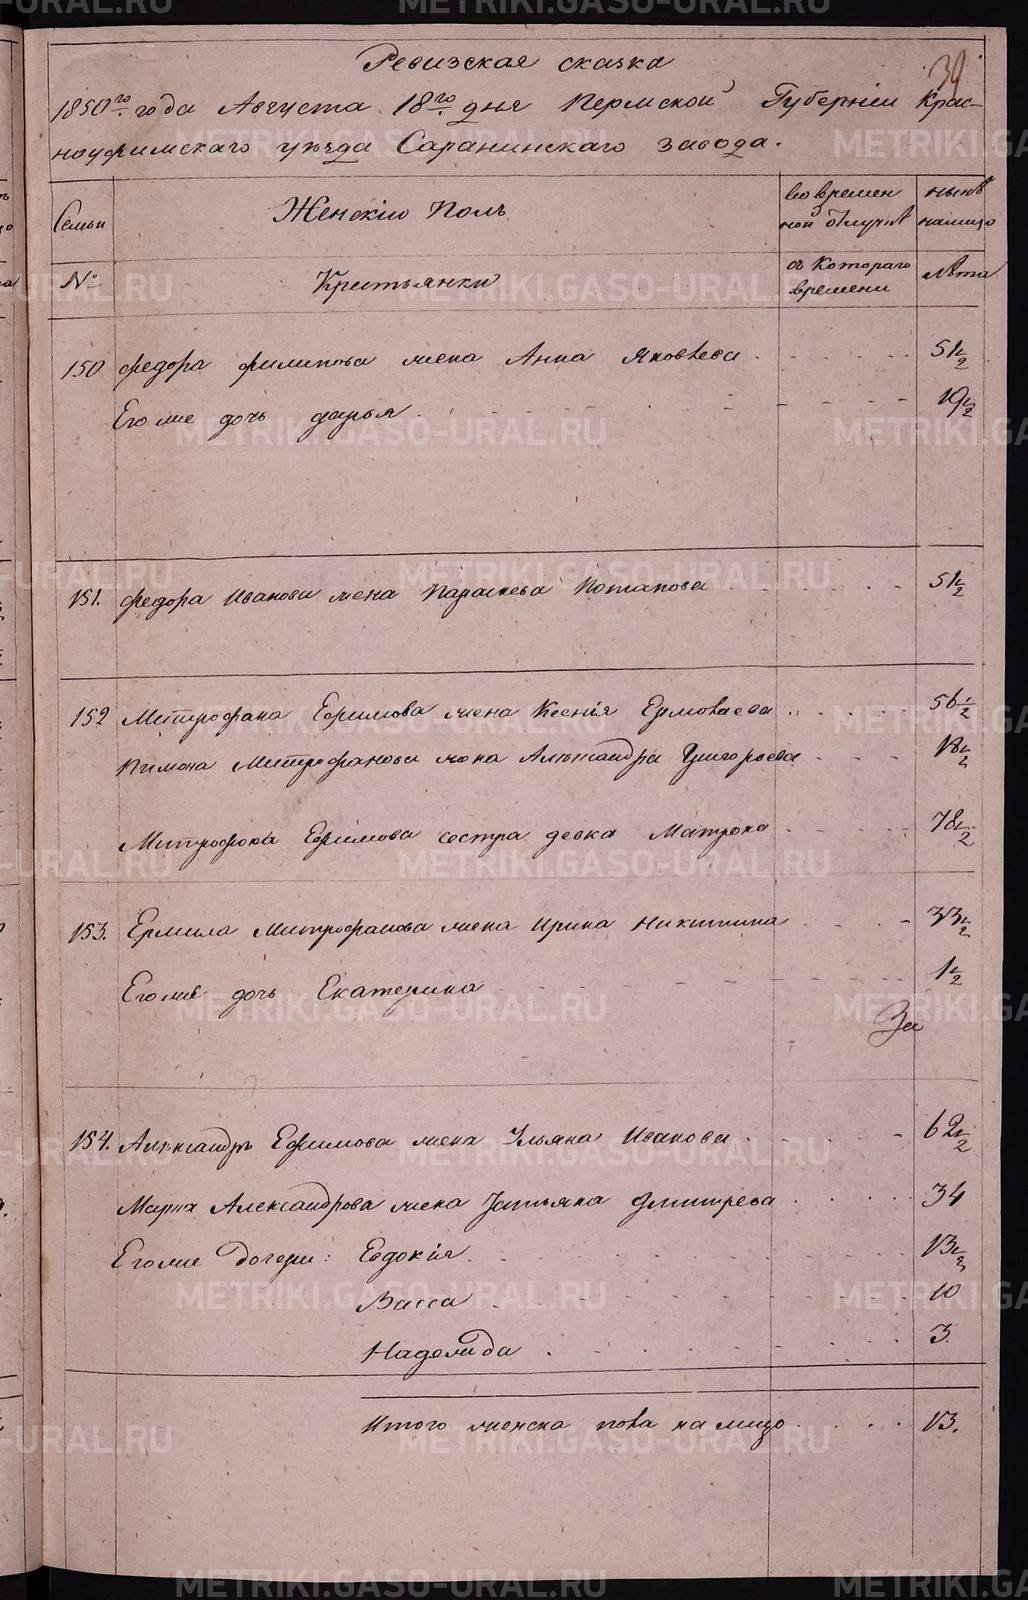 39
Ревизская сказка
1850го года Августа 18го дня Пермской Губернии Крас-
ноуфимскаго уѣзда Саранинскаго завода.
Семьи Женскiй Полъ во времен ной отлучкѣ нынѣ налицо
№ Крестьянки съ котораго времени лѣта
150 федора филипова жена Анна Яковлева 51 1/2
Его же дочь дарья 19 1/2
151. федора Иванова жена Параскева Потапова 51 1/2
152 Митрофана Ефимова жена Ксенiя Ермолаева 56 1/2
Пимона Митрофанова жена Александра Григорьева 18 1/2
Митрофана Ефимова сестра девка Матрона 78 1/2
153. Ермила Митрофанова жена Ирина Никитина 33 1/2
Его же дочь Екатерина 1 1/2
За
154. Александръ Ефимова жена Ульяна Иванова 62 1/2
Марка Александрова жена Татьяна Дмитрева 34
Его же дочери: Евдокiя 13 1/2
Васса 10
Надежда 3
Итого женска пола на лицо 13.
METRIKI.GASO-URAL.RU